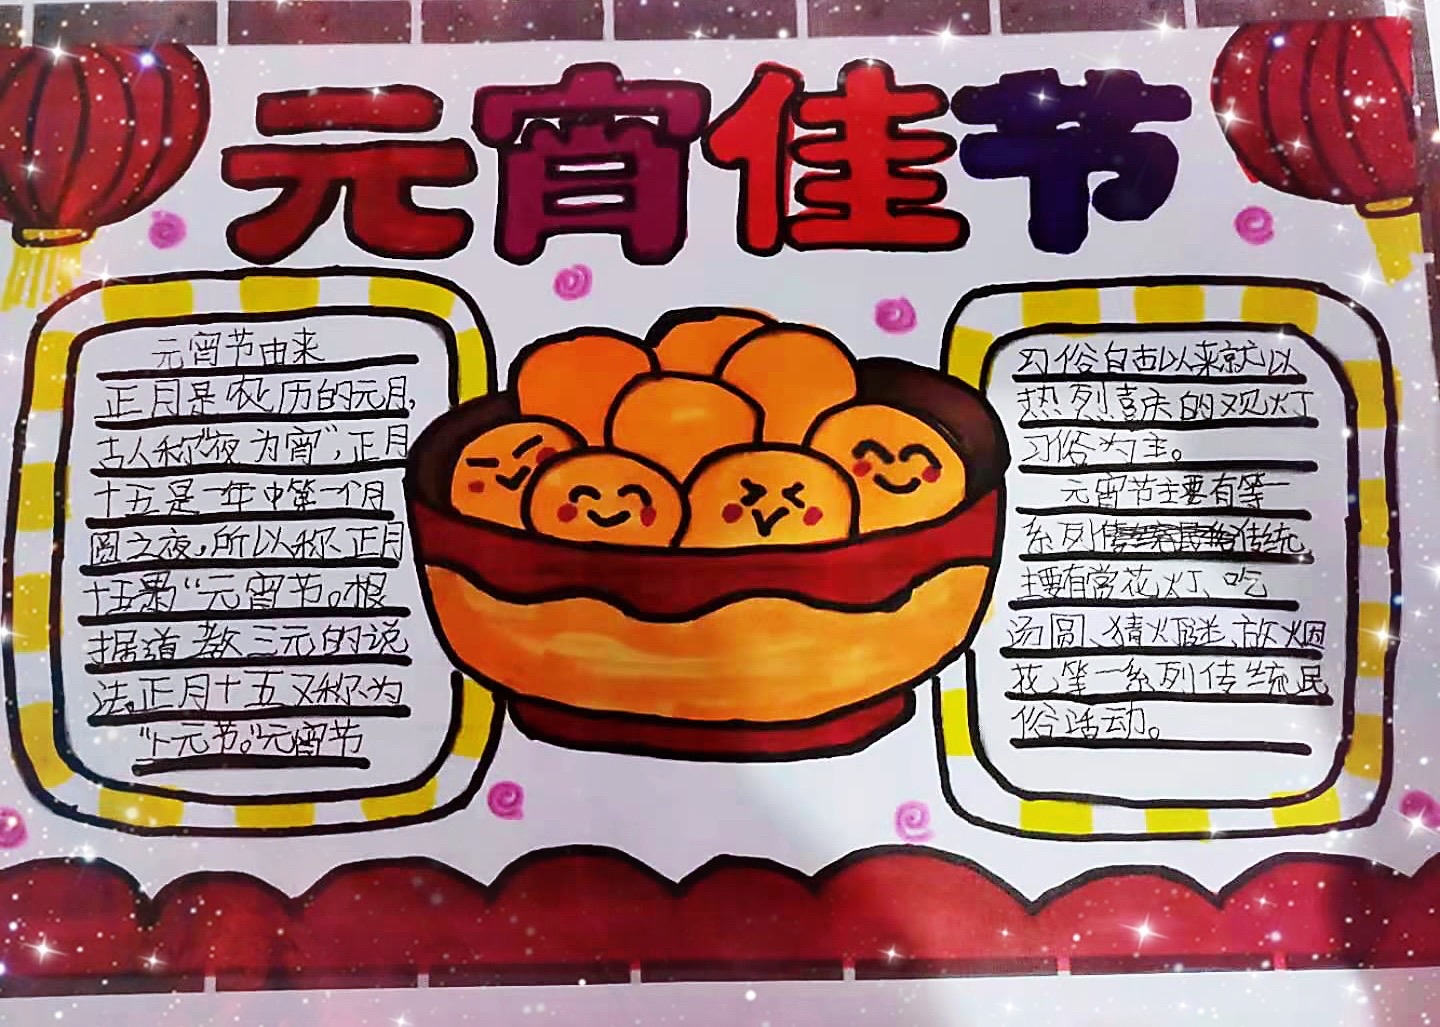 元宵佳节
元宵节由来
正月是农历的元月,
古人称"夜为宵",正月
十五是一年中第一个月
圆之夜,所以称正月
十五为"元宵节。根
据道教三元的说
法,正月十五又称为
"上元节。"元宵节
习俗自古以来就以
热列喜庆的观灯
习俗为主。
元宵节主要有等一
系列传统
主要有赏花灯、吃
汤圆、猜灯谜、放烟
花、等一系列传统民
俗活动。